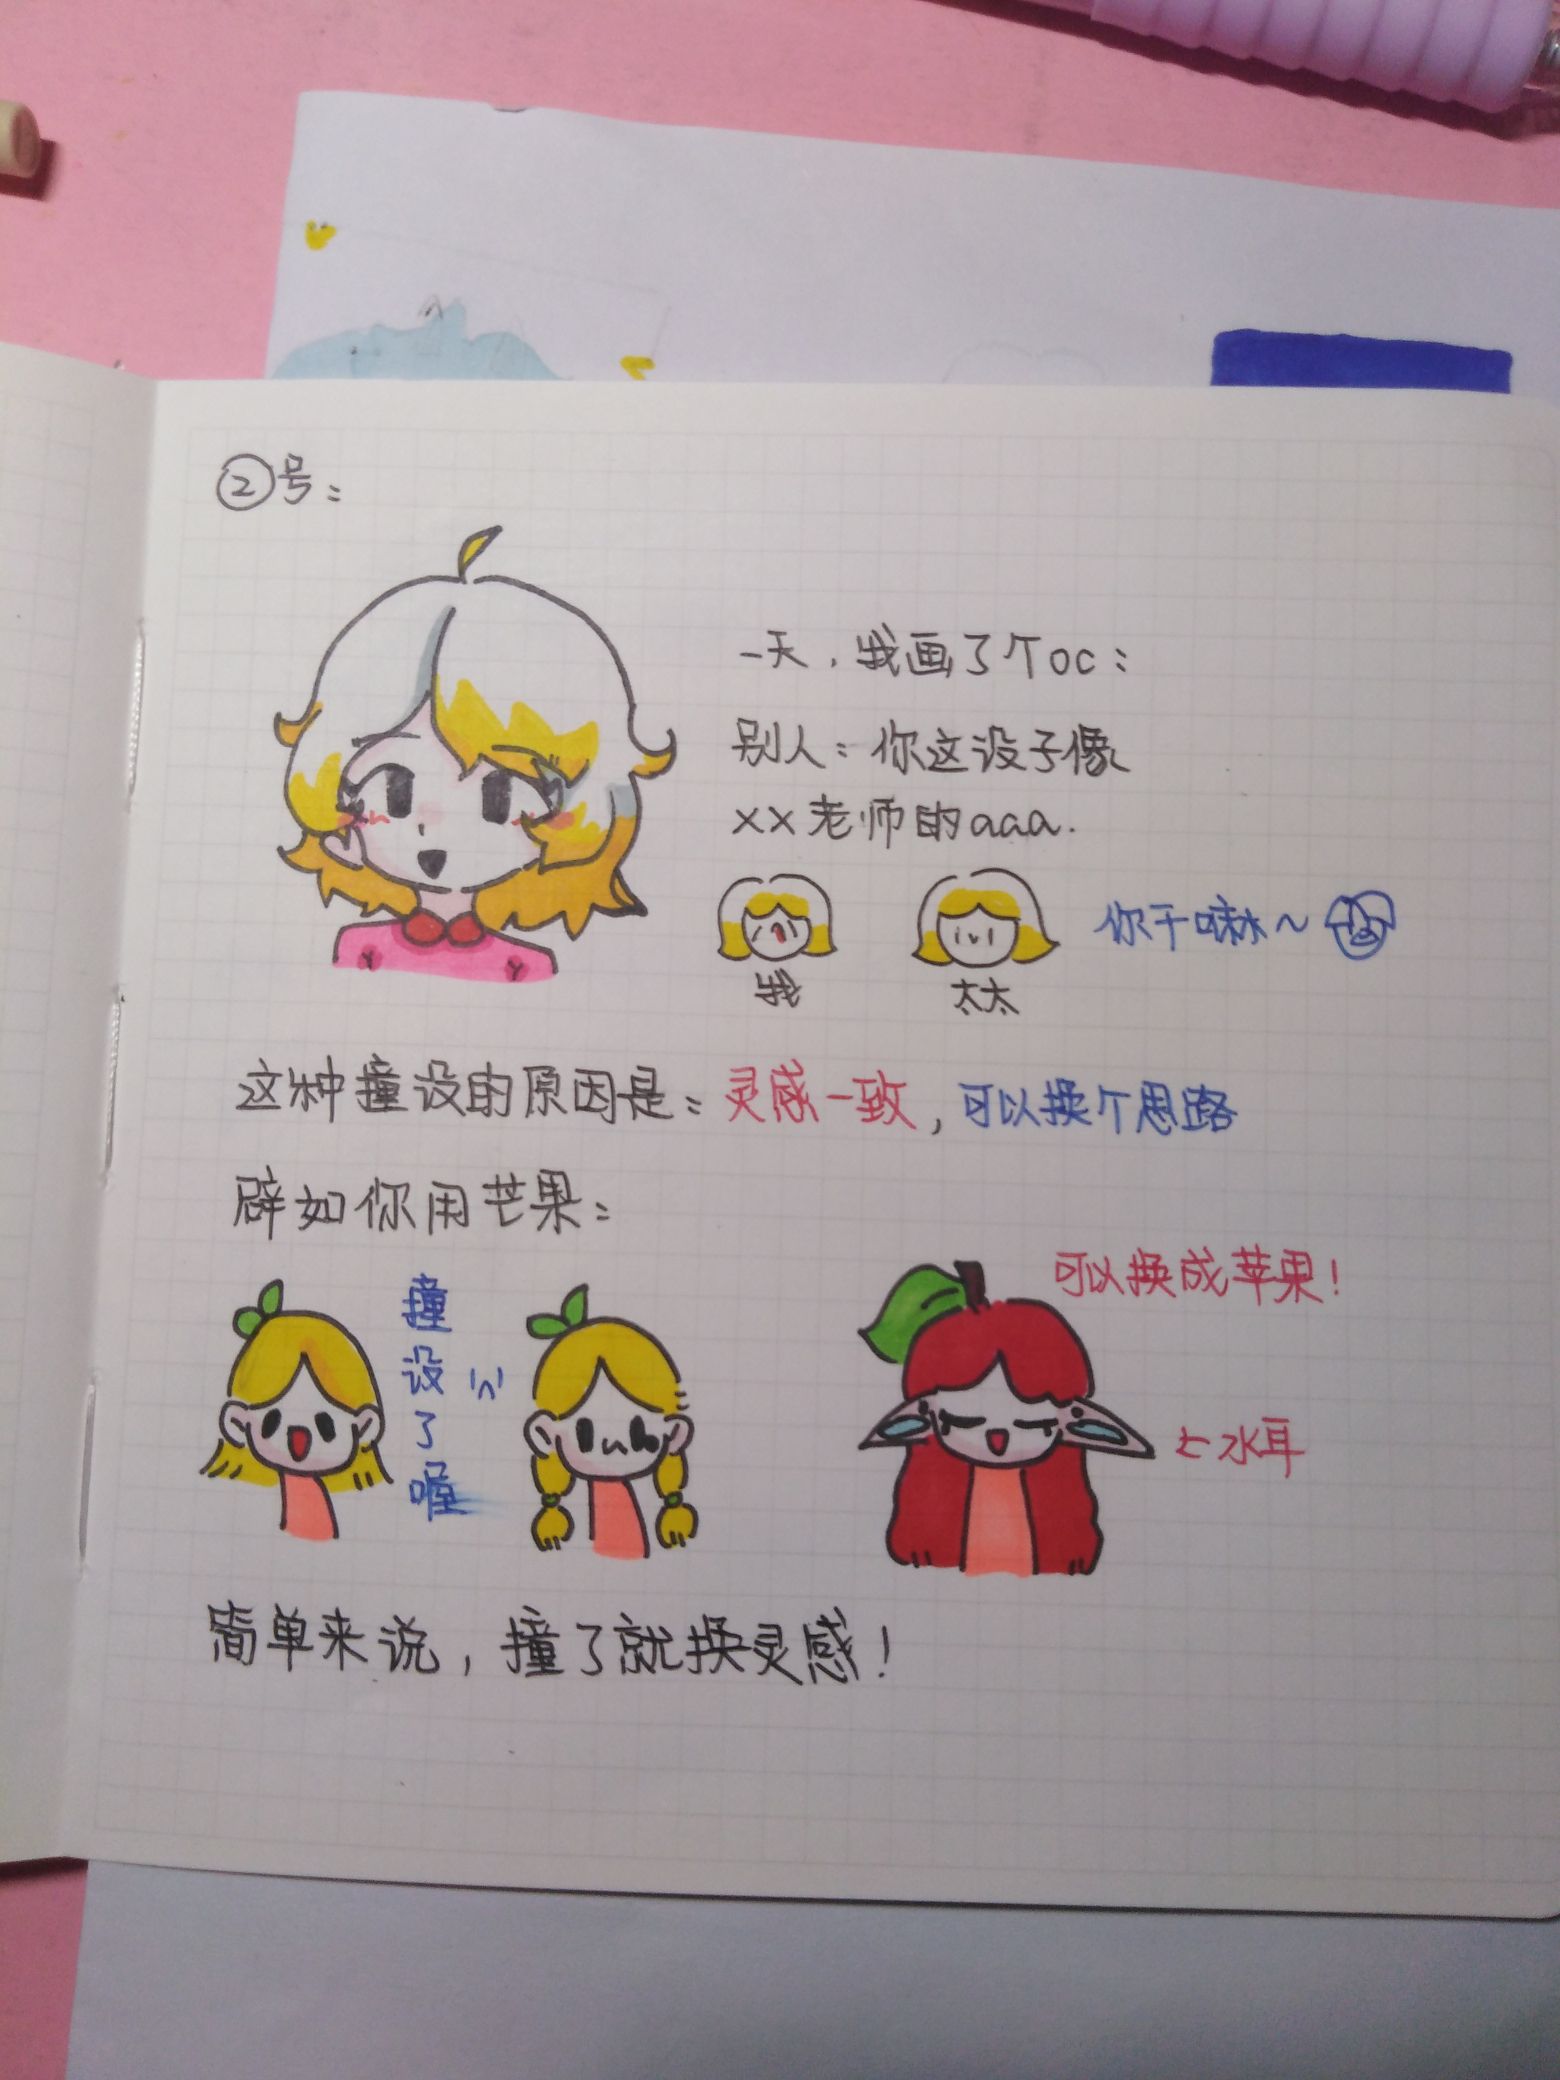 ②号：
一天，我画了个oc：
别人：你这设子像
xx老师的aaa.
你干嘛~
我
太太
这种撞设的原因是：灵感一致，可以换个思路
辟如你用芒果：
可以换成苹果！
撞设了喔
水耳
简单来说，撞了就换灵感！